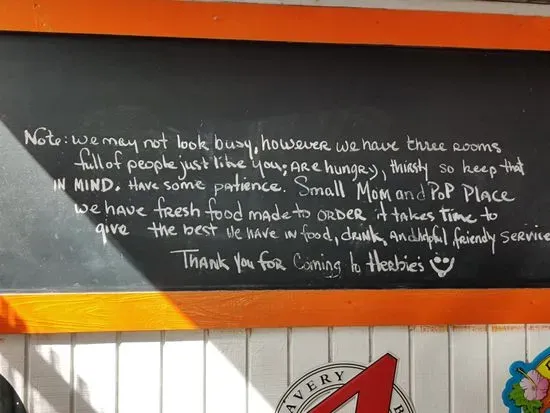 Note: we may not look busy, however we have three rooms
full of people just like you; are hungry, thirsty so keep that
IN MIND. Have some patience. Small Mom and PoP PLACE
we have fresh food made to ORDER it takes time to
give the best We have in food, drink, and helpful friendly SERVICE
THANK You FOR Coming to Herbie's
AVERY B